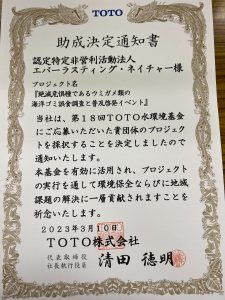 TOTO
助成決定通知書
認定特定非営利活動法人
エバーラスティング・ネイチャー様
プロジェクト名
『絶滅危惧種であるウミガメ類の
海洋ゴミ誤食調査と普及啓発イベント』
当社は、第18回TOTO水環境基金
にご応募いただいた貴団体のプロジェクト
を採択することを決定しましたので
通知いたします。
本基金を有効に活用され、プロジェクト
の実行を通して環境保全ならびに地域
課題の解決に一層貢献されますことを
祈念いたします。
2023年3月10日
TOTO株式会社
代表取締役
社長執行役員
清田 徳明